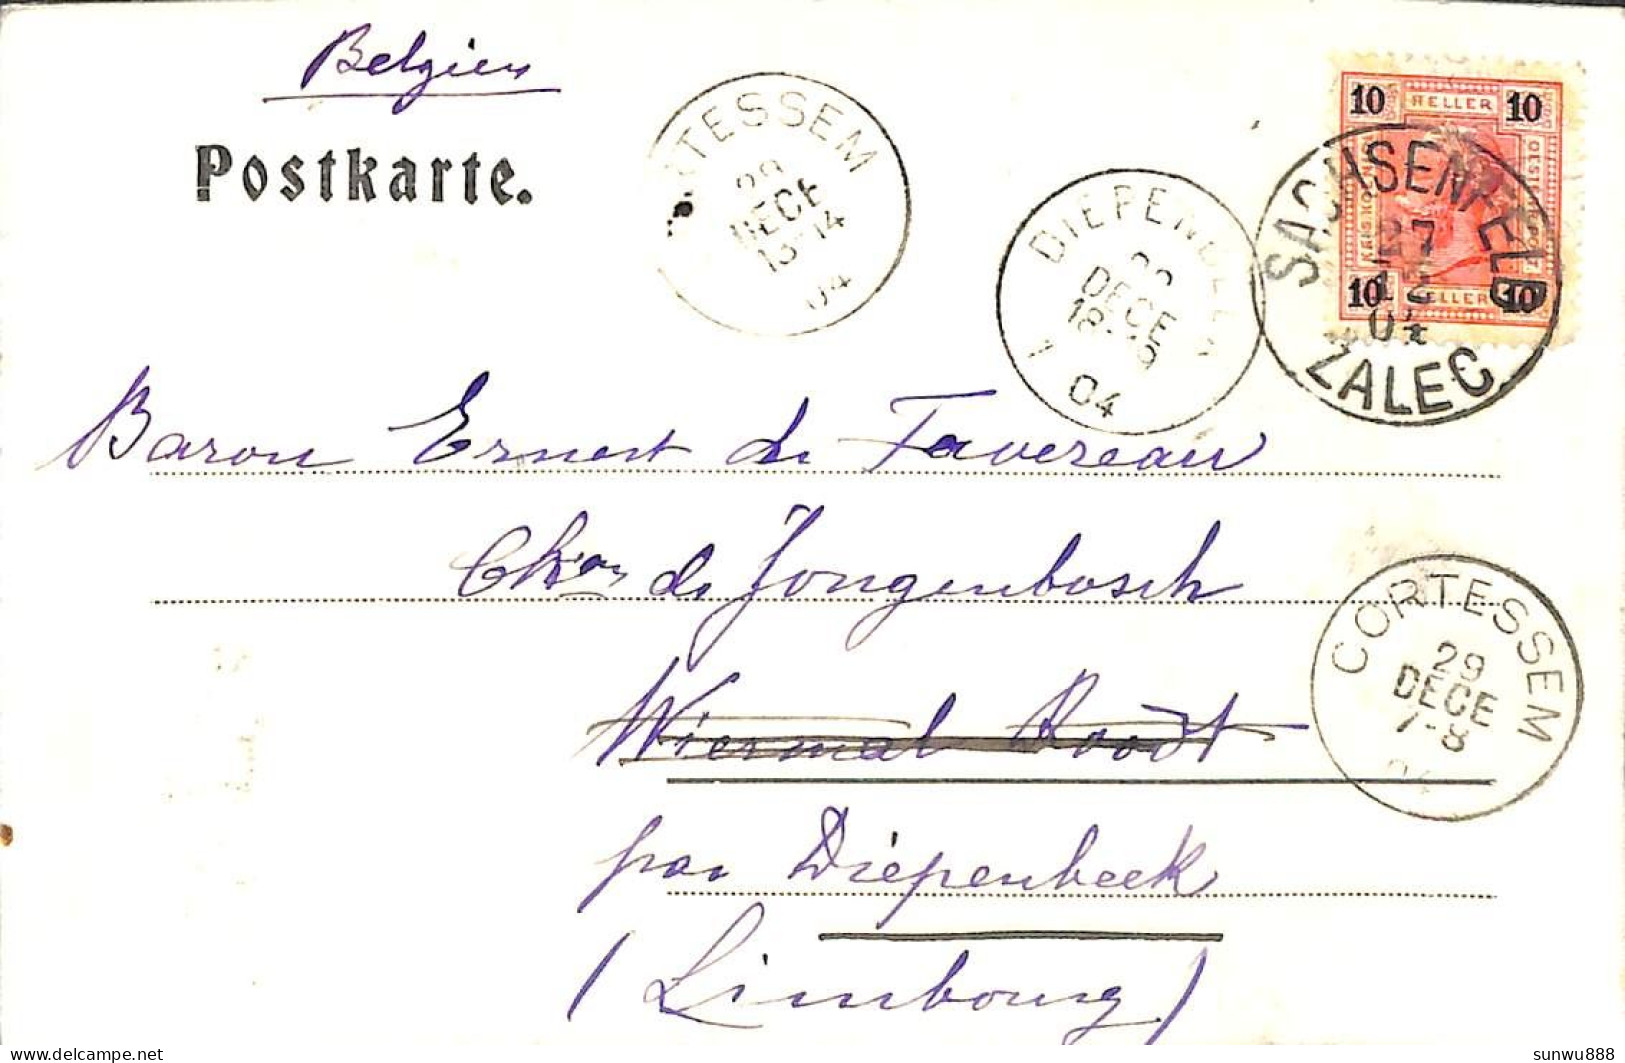 Belgien
Postkarte.
RTESSEM
29
DECE
13-14
04
DIEPENBEEK
DECE
1 04
10 HELLER 10
10 HELLER 10
SACHSENFELD
27
12
04
ZALEC
Baron Ernest de Favereau
Chau de Jongenbosch
CORTESSEM
29
DECE
7-8
04
Wiermal Roodt
par Diepenbeek
(Limbourg)
www.delcampe.net
sunwu888